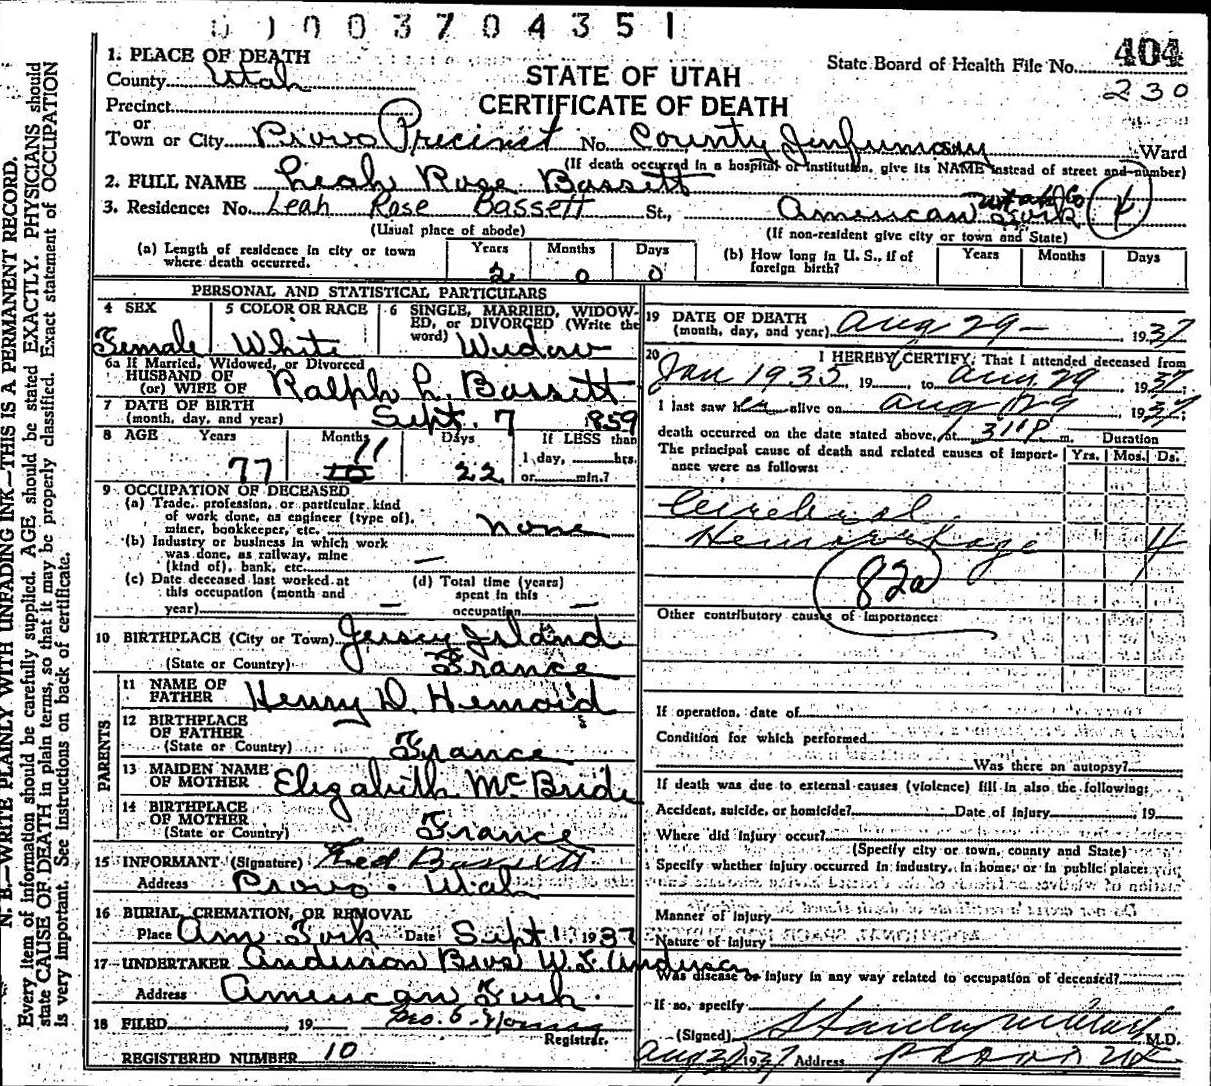 0 1 0 0 3 7 0 4 3 5 1
1. PLACE OF DEATH
County Utah
Precinct
or
Town or City Provo Precinct No. County Infirmary Ward
STATE OF UTAH
CERTIFICATE OF DEATH
State Board of Health File No. 404
230
(If death occurred in a hospital or institution, give its NAME instead of street and number)
2. FULL NAME Leah Rose Bassett
3. Residence: No. Leah Rose Bassett St., American Fork Utah Co 4
(Usual place of abode)
(If non-resident give city or town and State)
(a) Length of residence in city or town where death occurred. Years 2 Months 0 Days 0
(b) How long in U. S., if of foreign birth? Years Months Days
PERSONAL AND STATISTICAL PARTICULARS
4 SEX Female
5 COLOR OR RACE White
6 SINGLE, MARRIED, WIDOWED, or DIVORCED (Write the word) Widow
6a If Married, Widowed, or Divorced
HUSBAND OF
(or) WIFE OF Ralph L. Bassett
7 DATE OF BIRTH
(month, day, and year) Sept. 7 1859
8 AGE Years 77 Months 10 11 Days 22
If LESS than
1 day, hrs.
or min.?
9 OCCUPATION OF DECEASED
(a) Trade, profession, or particular kind
of work done, as engineer (type of),
miner, bookkeeper, etc. none
(b) Industry or business in which work
was done, as railway, mine
(kind of), bank, etc. —
(c) Date deceased last worked at
this occupation (month and
year) —
(d) Total time (years)
spent in this
occupation —
10 BIRTHPLACE (City or Town) Jersey Island
(State or Country) France
PARENTS
11 NAME OF
FATHER Henry D.
12 BIRTHPLACE
OF FATHER
(State or Country) France
13 MAIDEN NAME
OF MOTHER Elizabeth McBride
14 BIRTHPLACE
OF MOTHER
(State or Country) France
15 INFORMANT (Signature) Fred Bassett
Address Provo. Utah
16 BURIAL, CREMATION, OR REMOVAL
Place Am. Fork Date Sept 1 1937
17 UNDERTAKER Anderson Bros W. L. Anderson
Address American Fork.
18 FILED , 19
Registrar.
REGISTERED NUMBER 10
19 DATE OF DEATH
(month, day, and year) Aug 29- 1937
20 I HEREBY CERTIFY, That I attended deceased from
Jan 1935, 19 , to Aug 29 1937,
I last saw her alive on Aug 29 1937,
death occurred on the date stated above, at m.
The principal cause of death and related causes of importance were as follows:
Duration
Yrs. Mos. Ds.
Cerebral
Hemorrhage 4
82a
Other contributory causes of importance:
If operation, date of
Condition for which performed
Was there an autopsy?
If death was due to external causes (violence) fill in also the following:
Accident, suicide, or homicide? Date of injury , 19
Where did injury occur?
(Specify city or town, county and State)
Specify whether injury occurred in industry, in home, or in public place:
Manner of Injury
Nature of Injury
Was disease or injury in any way related to occupation of deceased?
If so, specify
(Signed) Stanley M. Clark M.D.
Aug 31 1937 Address Provo Ut
N. B.—WRITE PLAINLY WITH UNFADING INK—THIS IS A PERMANENT RECORD.
Every item of information should be carefully supplied. AGE should be stated EXACTLY. PHYSICIANS should
state CAUSE OF DEATH in plain terms, so that it may be properly classified. Exact statement of OCCUPATION
is very important. See instructions on back of certificate.